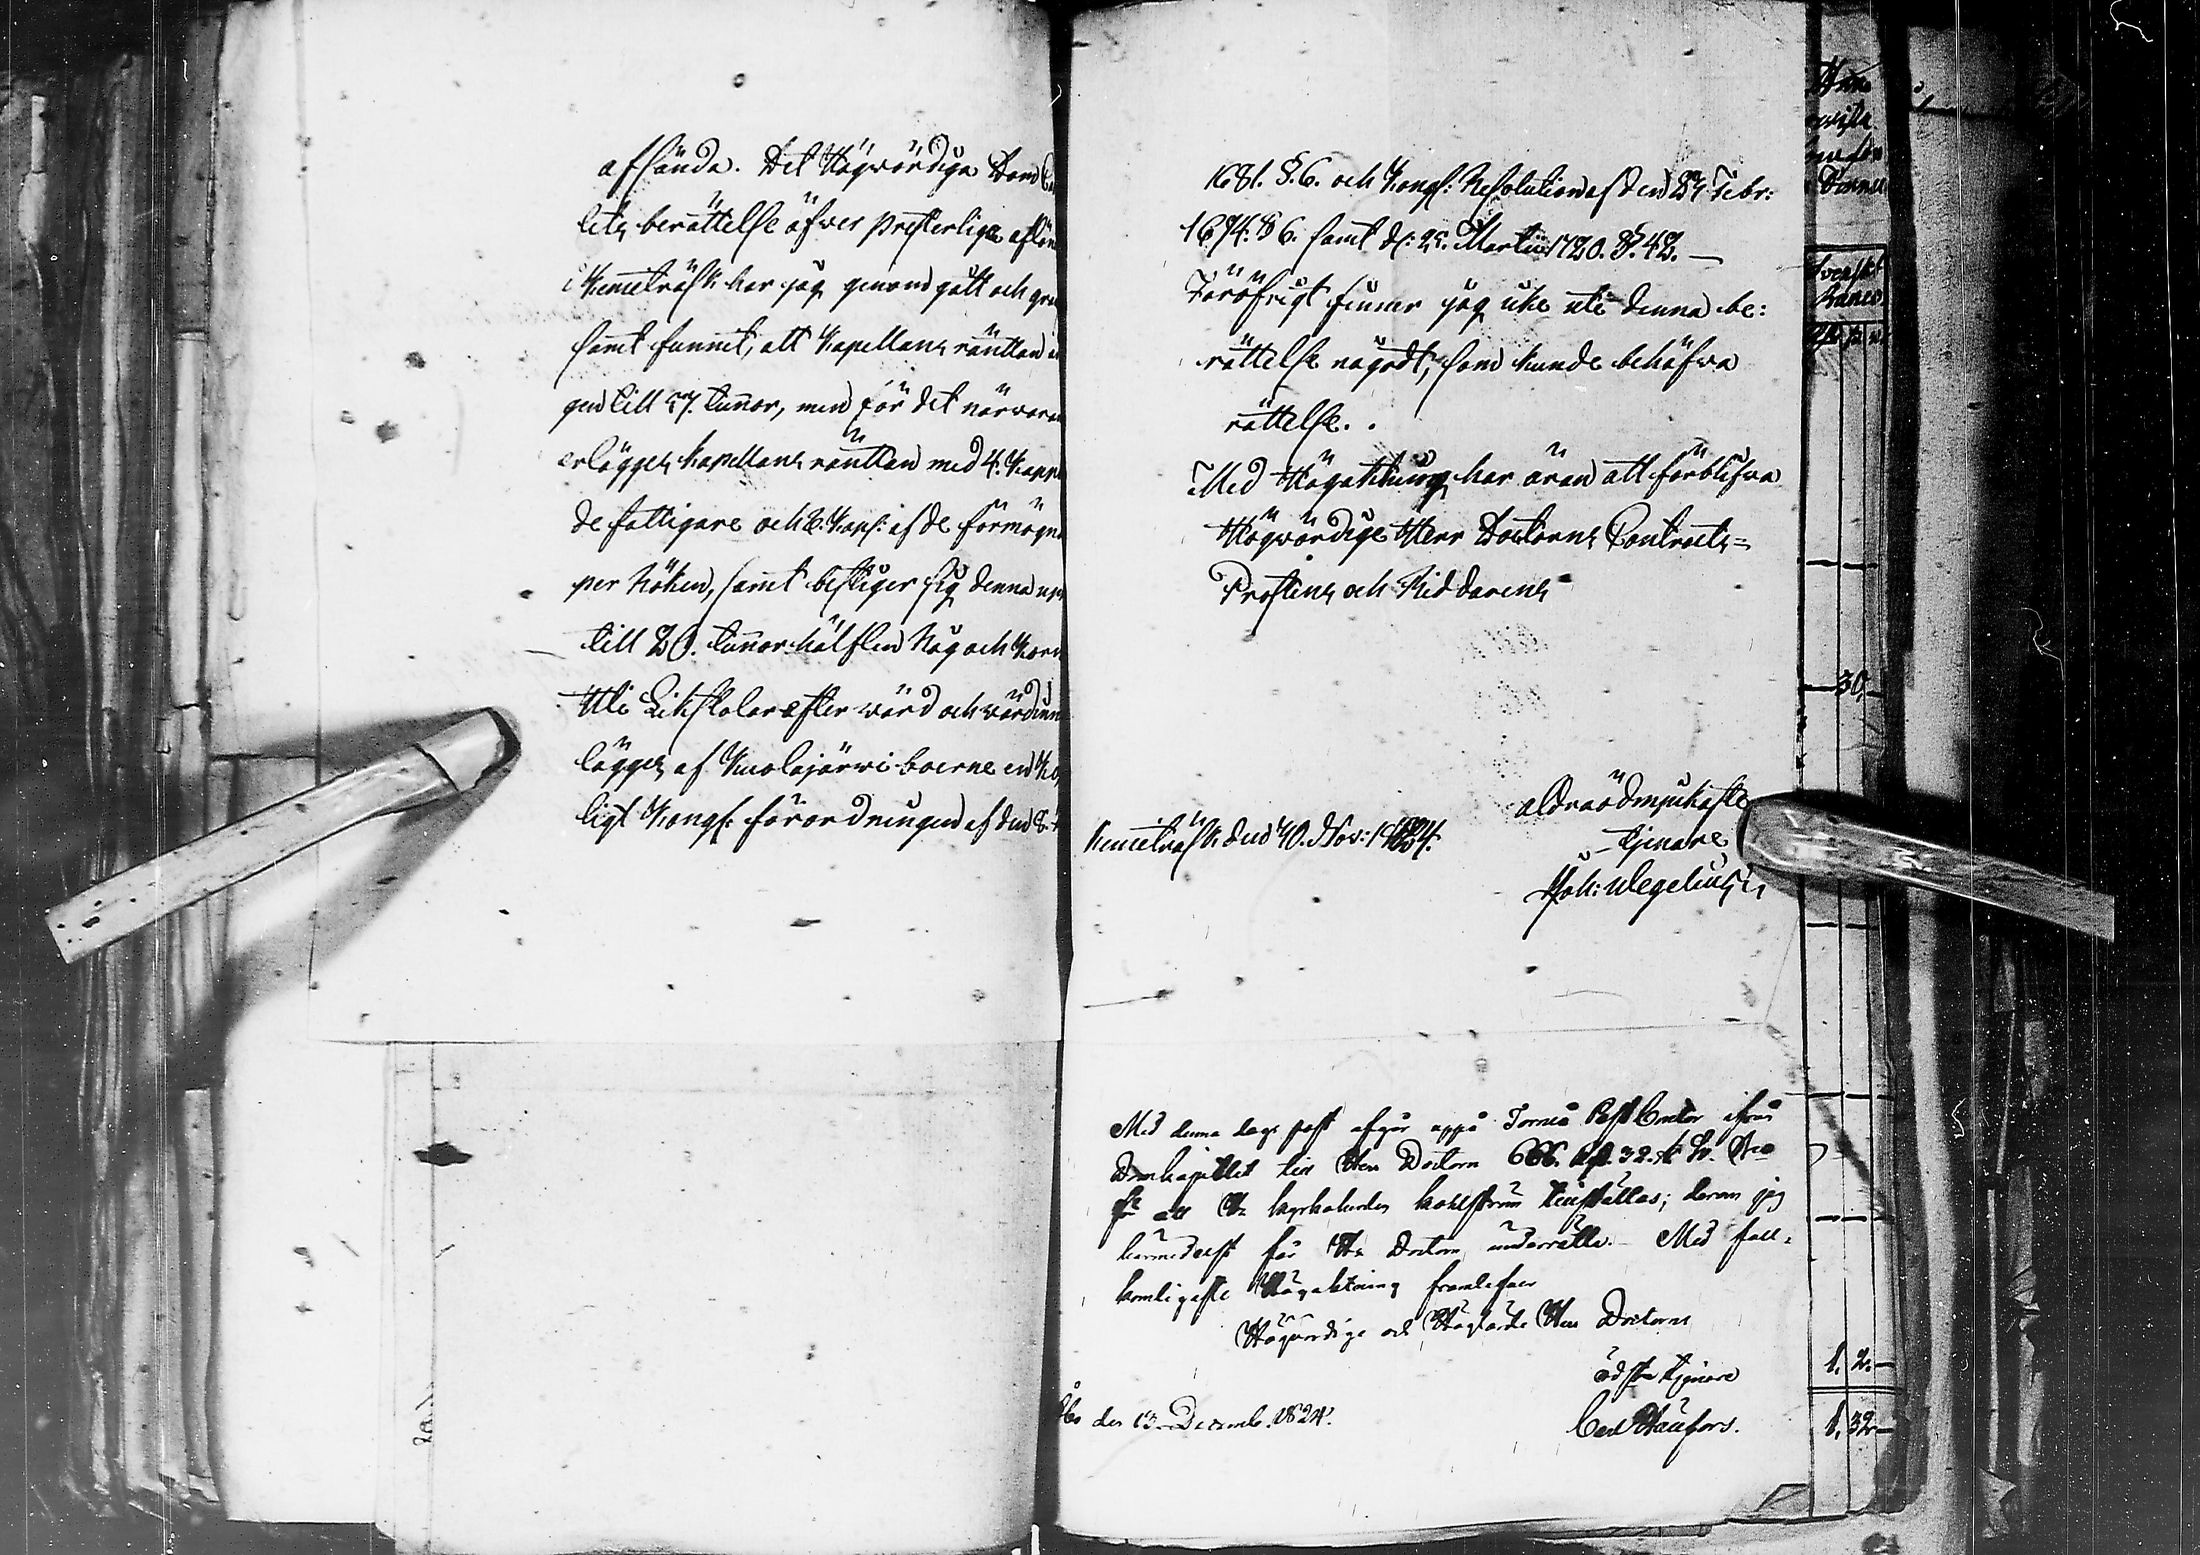 afsända. Det Högwördiga Dom Ca
lets berättelse öfwer Presterliga aflön
i Kemiträsk har jag genom gått och gran
samt funnit, att Kapellans räntan
gen till 57. tunnor, men för det närwaran
erlägges kapellans räntan med 4. Kappa
de fattigare och 8. Kapf: af de förmögna
per Röken, samt bestiger sig denna
till 20. tunnor hälften Råg och Korn
Uti Likstolar efter wärd och wärdinn
lägges af Kuolajärwi boerne en Ko
ligt Kongl: förordningen af den 8.
1681. §. 6. och Kongl: Resolution af den 27 Febr:
1674. § 6. samt d: 25. Martii 1720. §. 42.
Föröfrigt finner jag icke uti denna be:
rättelse någodt, som kunde behöfwa
rättelse.
Med Högaktning har äran att förblifwa
Högwördige Herr Doctorns Contracts=
Prostens och Riddarens
aldraödmjukaste
tjenare
Joh: Wegelius
Kemiträsk den 30. Nov: 1824.
Med denna dags post afgår uppå Torneå Post Contor ifrån
Domkapitlet till Herr Doctorn 666. Rd. 32. sk
att Hr kyrkoherden Wohlström tillställas; derom jag
härmedelst får Hr Doctorn underrätta. Med full-
komligaste Högaktning framlefwer
Högwördige och Höglärde Herr Doctorns
ödste tjenare
Carl
Åbo den 13 Decemb. 1824.
Svenskt
Banco
30,
1, 2.
1, 32